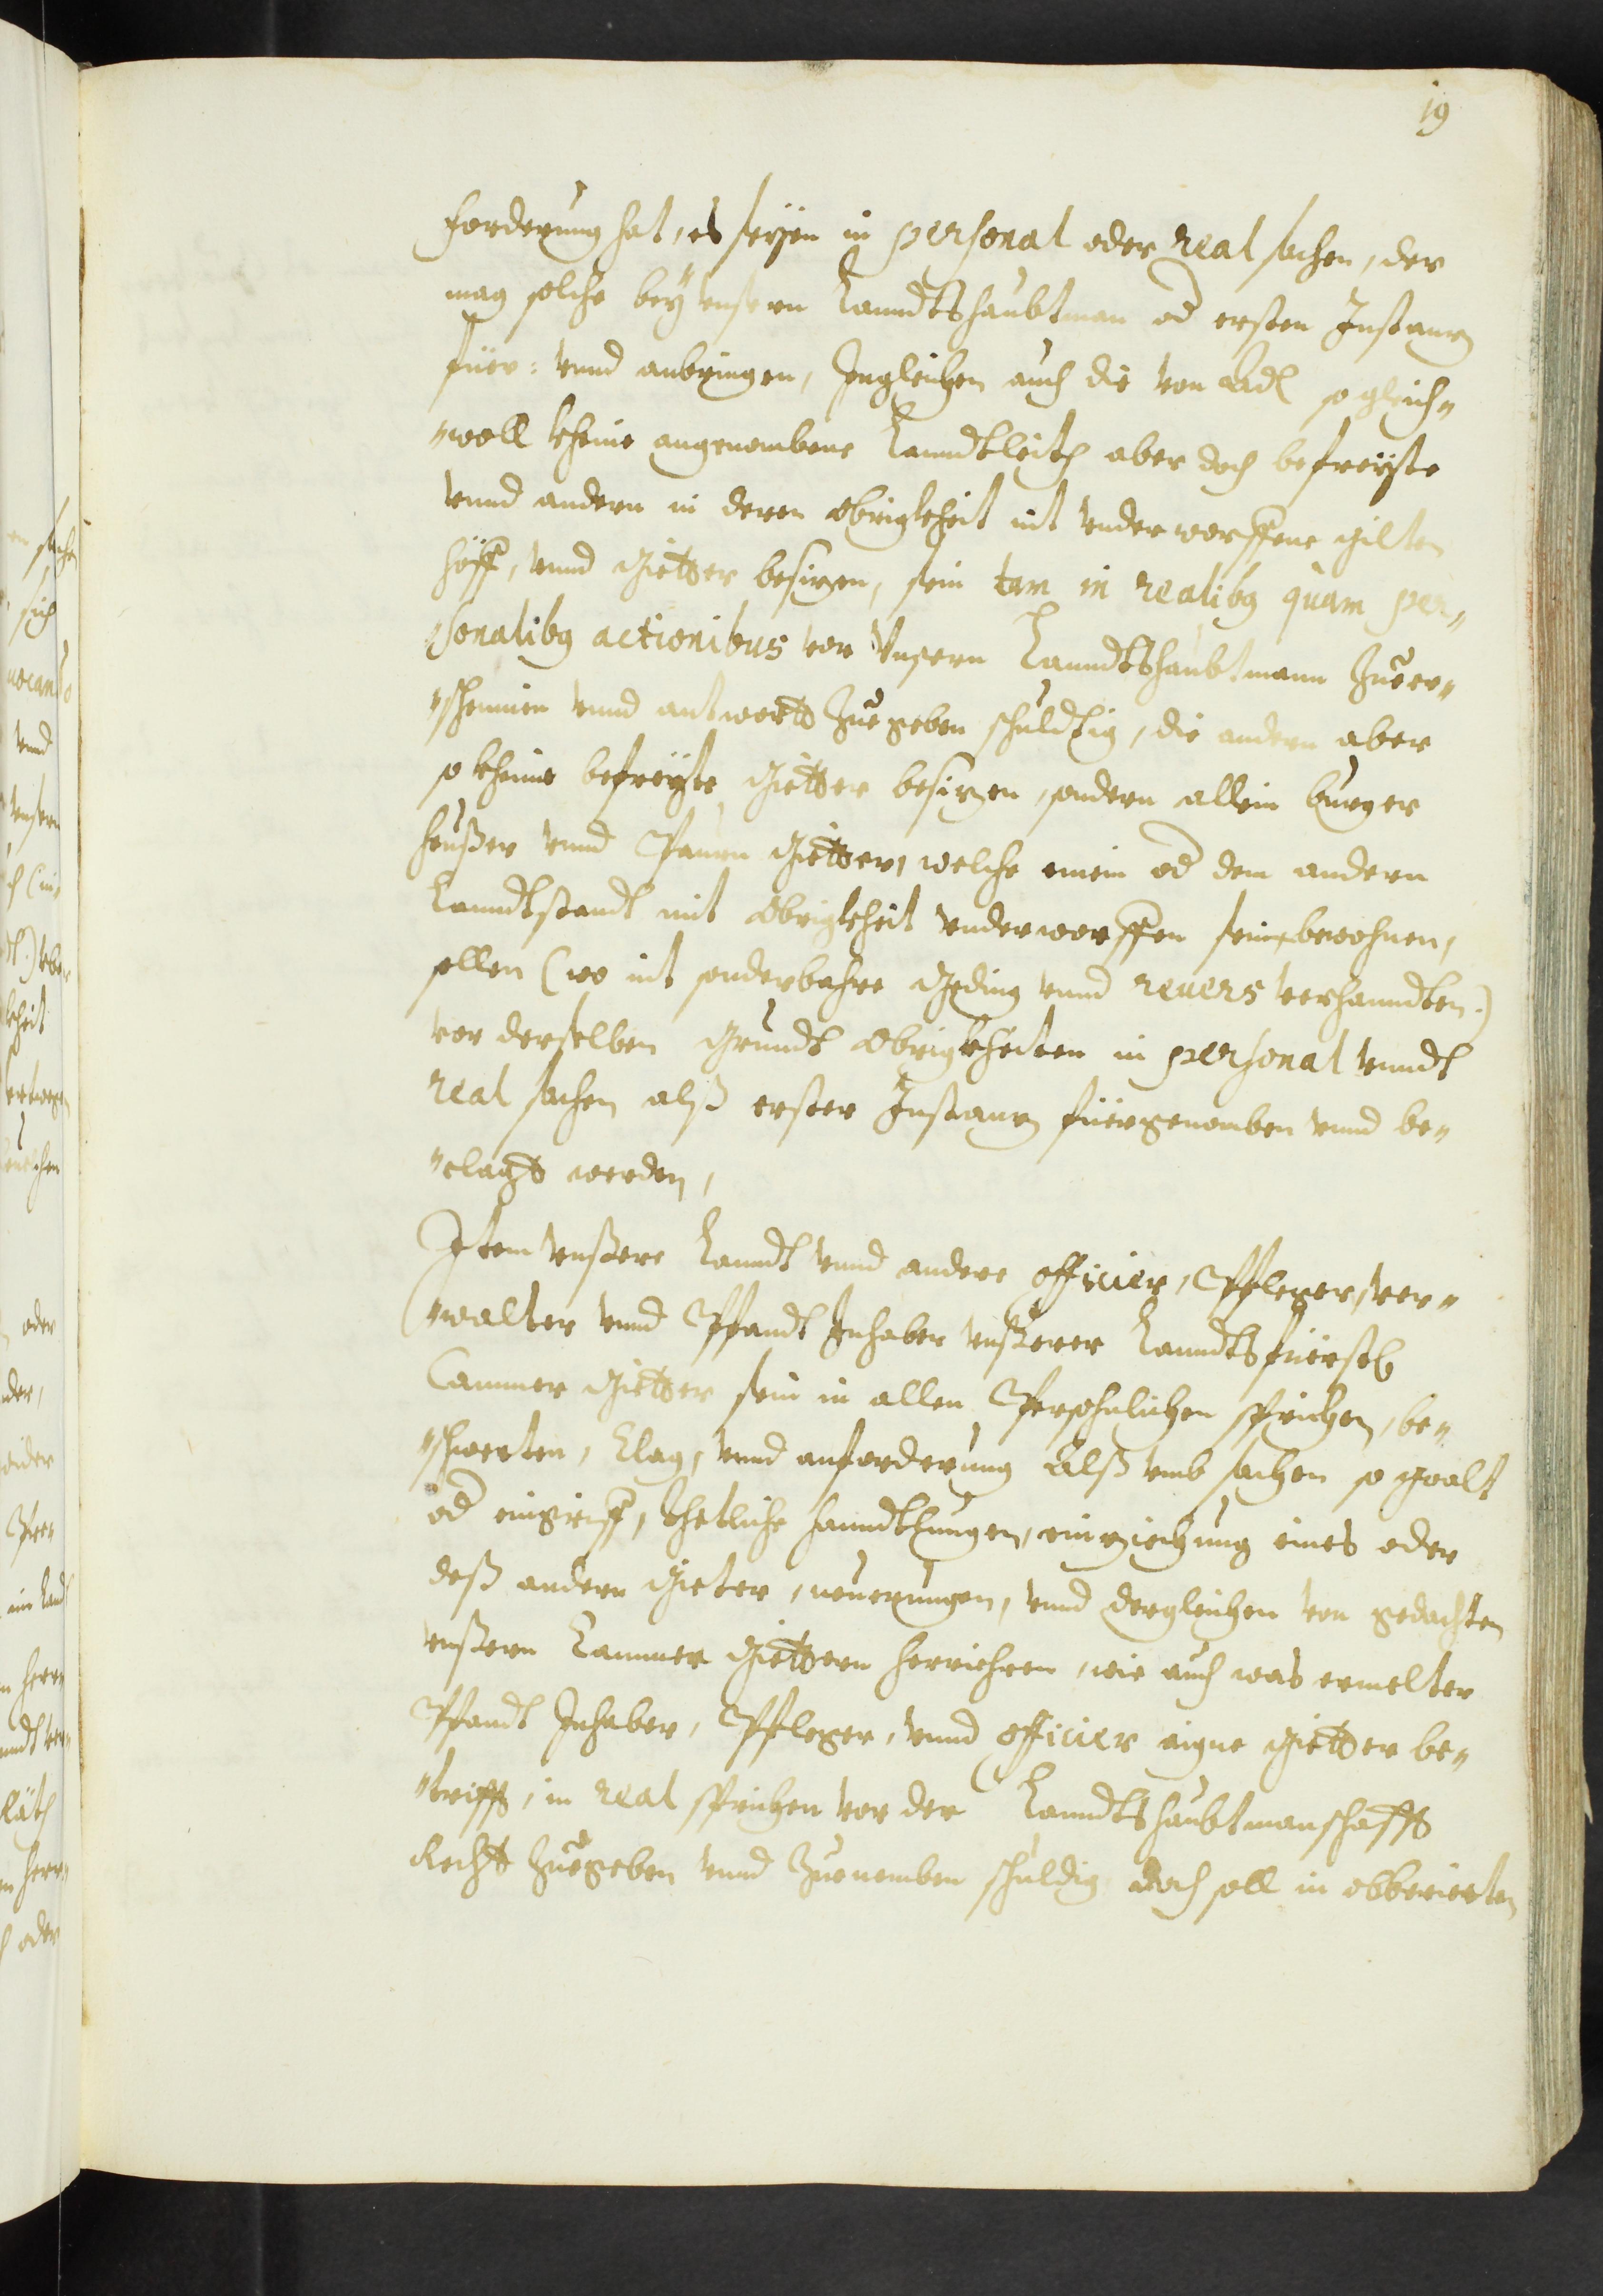 19
forderung hat, es seyen in personal oder real sachen, der
mag solche beÿ vnsern Lanndtshaubtman od ersten Instannz
füer: vnnd anbringen, Ingleichen auch die von Adl so gleich„
„woll kheine angenombene Lanndtleith aber doch befreyste
vnnd andern in deren Obrigkheit nit vnderworffene Gilten
höff, vnnd Güetter besizen, sein tam in realibg quam per„
„sonalibg actionibus vor Vnsern Lanndtshaubtmann Zuer„
„scheinnen vnnd antwortt Zuegeben schuldtig, die andern aber
so kheine befreyte Güetter besizen, sondern allein burger
heüßer vnnd Paurn Güetter, welche einem od dem andern
Lanndtstandt mit Obrigkheit vnderworffen sein, bewohnen,
sollen (wo nit sonderbahre Geding vnnd reuers verhanndten.)
vor derselben Grundt Obrigkheiten in personal vnndt
real sachen alß erster Instannz füergenomben vnnd be„
„clagt werden,
Item vnßere Lanndt vnnd andere officier, Pfleger, ver„
„walter vnnd Pfandt Inhaber vnßerer Lanndtsfürstl
Cammer Güetter sein in allen Persohnlichen sprüchen, be„
„schwerten, Clag, vnnd anforderung Alß vmb sachen so gwalt
od eingriff, thetliche hanndtlungen, einziechung eines oder
deß andern Güeter, neuerungen, vnnd dergleichen von gedachten
vnßern Cammer Güettern herriehren, wie auch was ermelter
Pfandt Inhaber, Pfleger, vnnd officier aigne Güetter be„
„trifft, in real sprüchen vor der Lanndtshaubtmanschafft
Recht Zuegeben vnnd Zuenemben schuldig Doch soll in obberierten